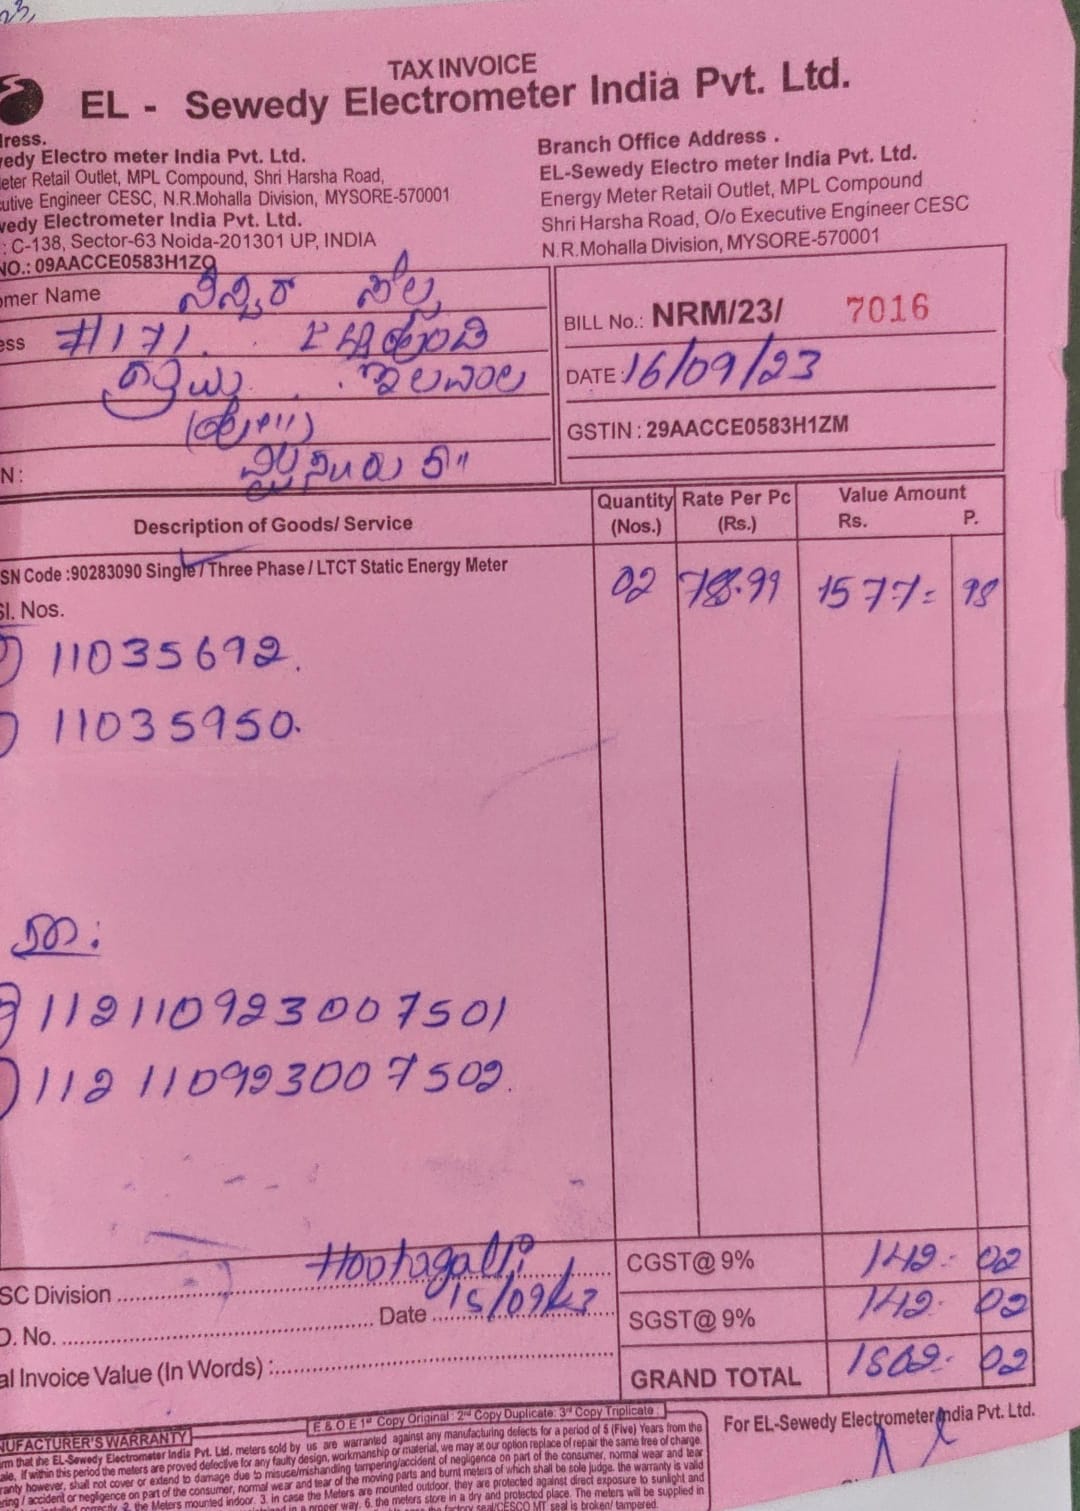 23,
TAX INVOICE
EL - Sewedy Electrometer India Pvt. Ltd.
dress.
wedy Electro meter India Pvt. Ltd.
eter Retail Outlet, MPL Compound, Shri Harsha Road,
cutive Engineer CESC, N.R.Mohalla Division, MYSORE-570001
wedy Electrometer India Pvt. Ltd.
: C-138, Sector-63 Noida-201301 UP, INDIA
NO.: 09AACCE0583H1ZQ
Branch Office Address .
EL-Sewedy Electro meter India Pvt. Ltd.
Energy Meter Retail Outlet, MPL Compound
Shri Harsha Road, O/o Executive Engineer CESC
N.R.Mohalla Division, MYSORE-570001
omer Name
ess #171.
N:
BILL No.: NRM/23/ 7016
DATE : 16/09/23
GSTIN : 29AACCE0583H1ZM
Description of Goods/ Service
Quantity (Nos.)
Rate Per Pc (Rs.)
Value Amount
Rs. P.
SN Code :90283090 Single / Three Phase / LTCT Static Energy Meter 02 788.99 1577= 98
Sl. Nos.
11035692.
11035950.
112110923007501
112110923007502.
SC Division Hootagalli
O. No. Date 15/09/23
al Invoice Value (In Words) :
CGST@ 9% 142- 02
SGST@ 9% 142- 02
GRAND TOTAL 02
E & O E 1st Copy Original : 2nd Copy Duplicate: 3rd Copy Triplicate :
For EL-Sewedy Electrometer India Pvt. Ltd.
NUFACTURER'S WARRANTY
rm that the EL-Sewedy Electrometer India Pvt. Ltd. meters sold by us are warranted against any manufacturing defects for a period of 5 (Five) Years from the
ale, If within this period the meters are proved defective for any faulty design, workmanship or material, we may at our option replace of repair the same free of charge.
ranty however, shall not cover or extend to damage due to misuse/mishandling tampering/accident of negligence on part of the consumer, normal wear and tear
ring / accident or negligence on part of the consumer, normal wear and tear of the moving parts and burnt meters of which shall be sole judge. the warranty is valid
the Meters mounted indoor. 3. in case the Meters are mounted outdoor, they are protected against direct exposure to sunlight and
in a proper way. 6. the meters store in a dry and protected place. The meters will be supplied in
factory seal/CESCO MT seal is broken/ tampered.